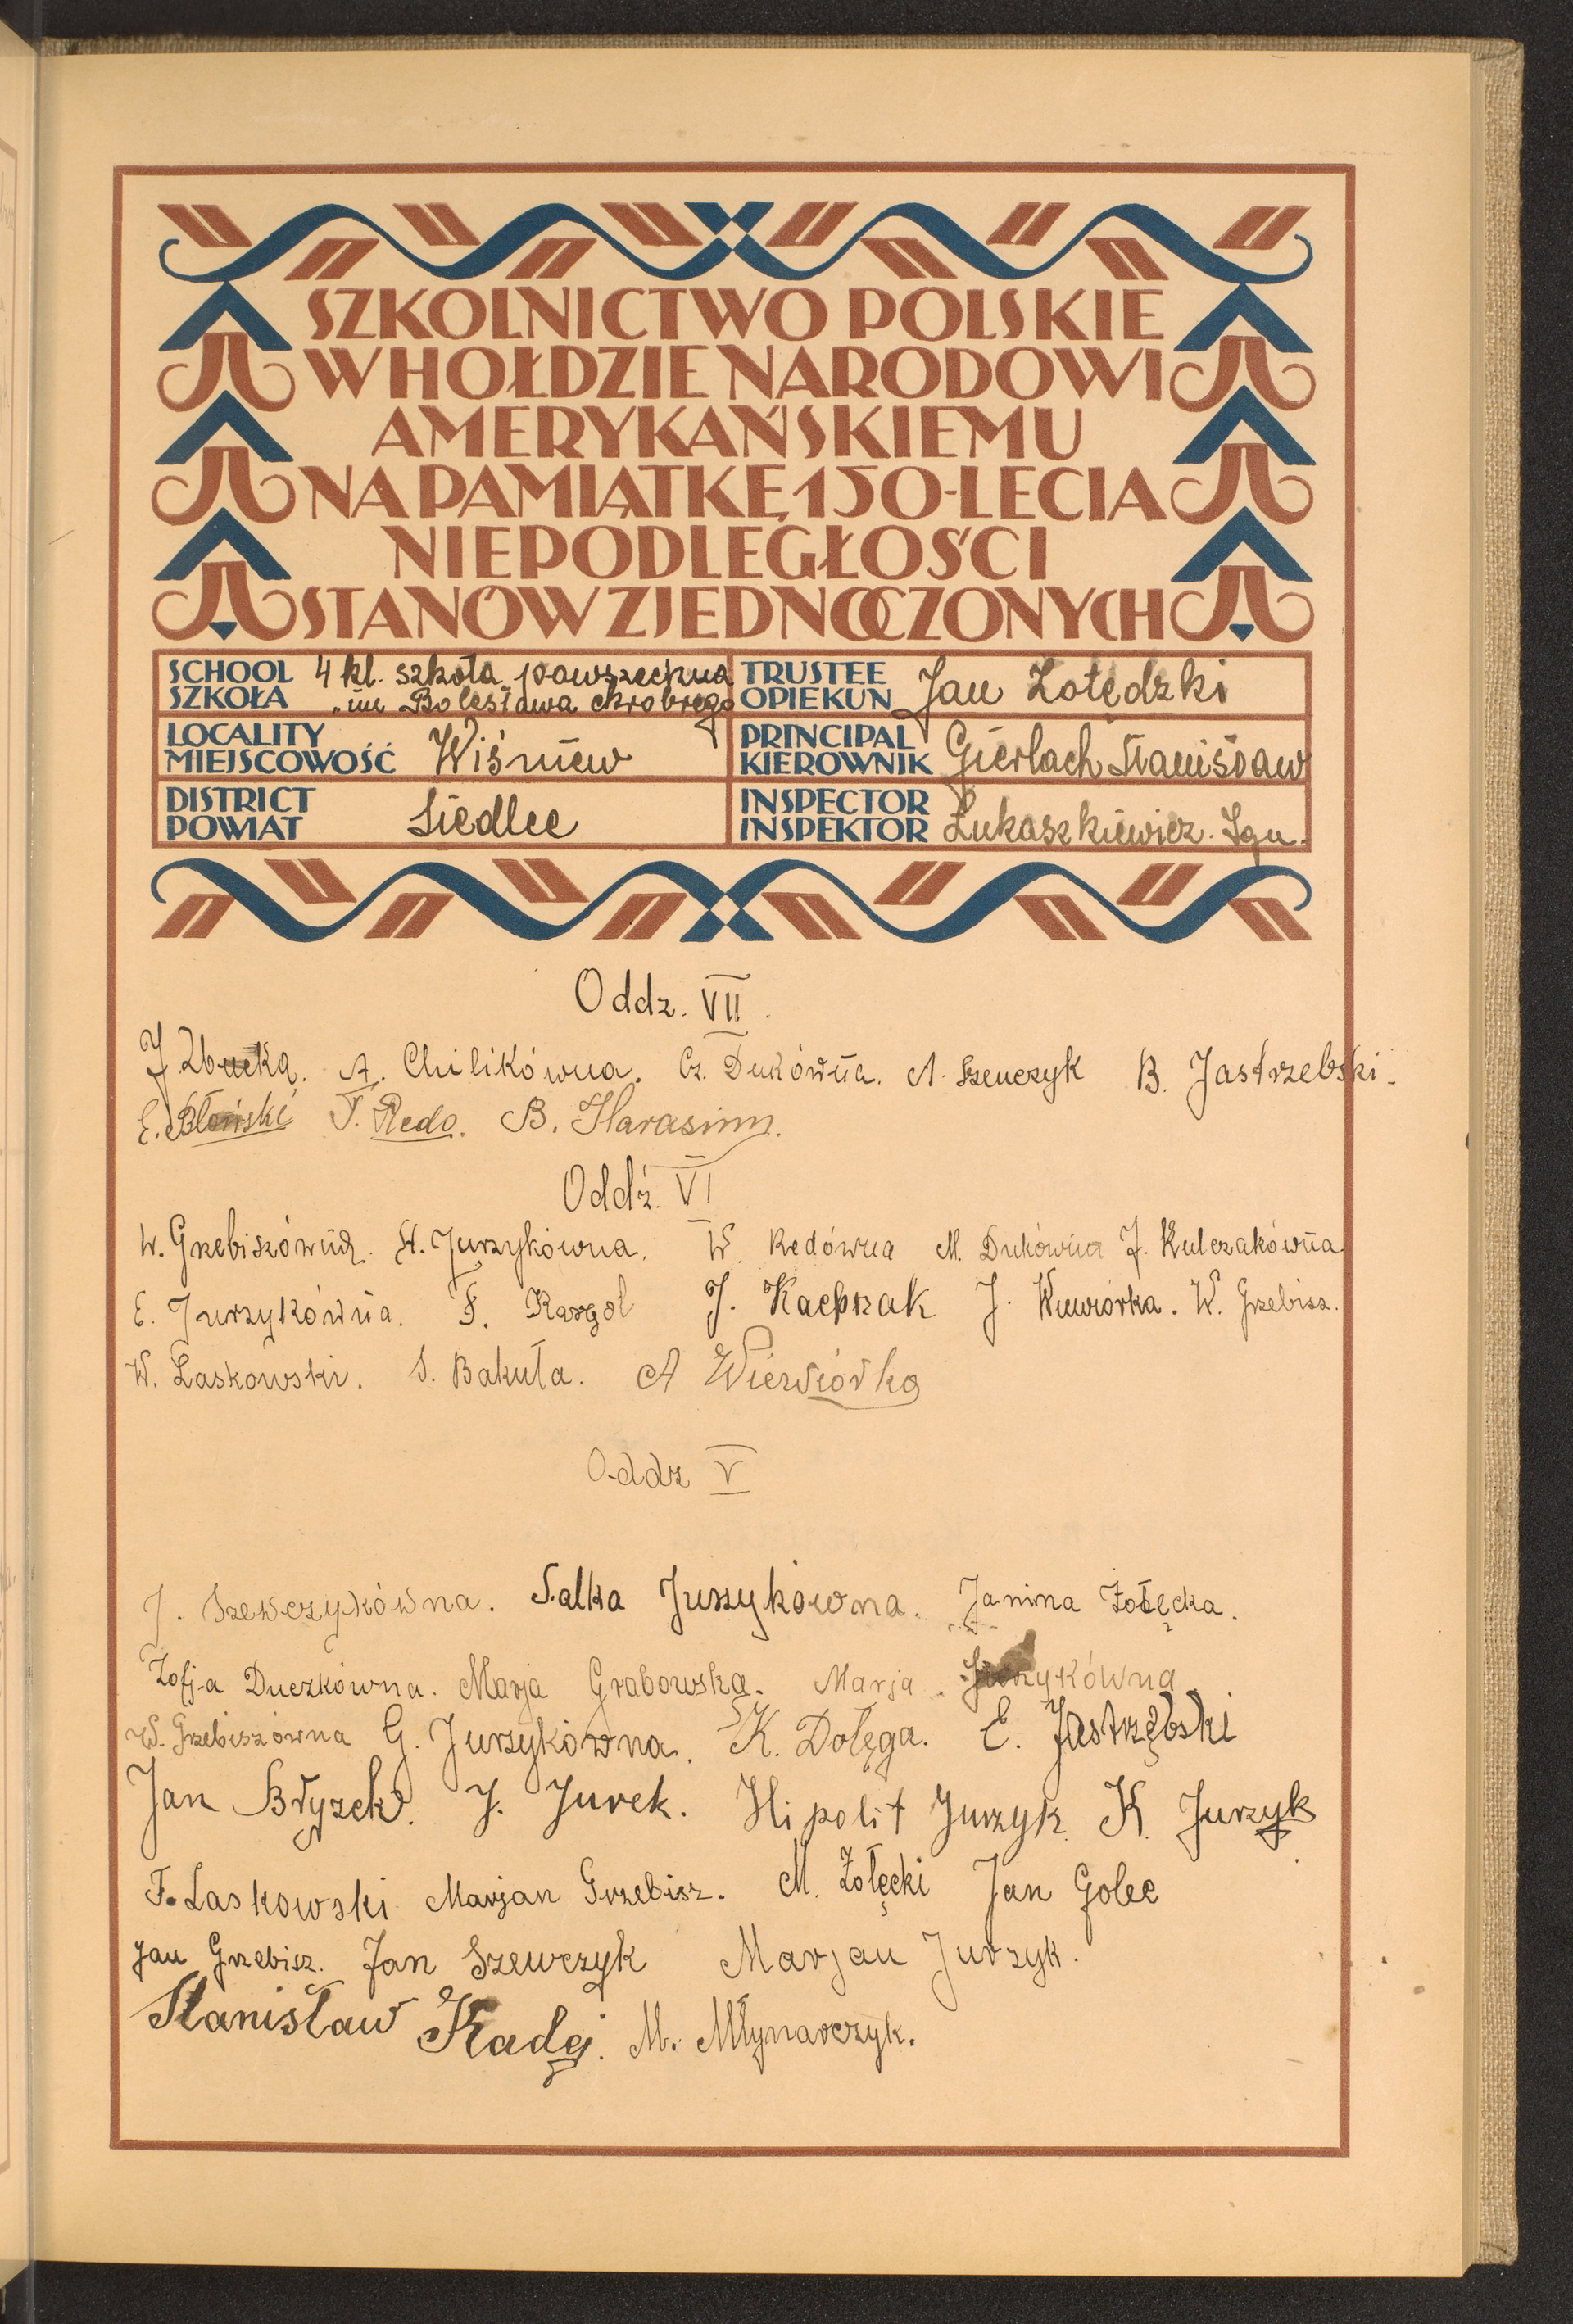 SZKOLNICTWO POLSKIE
W HOŁDZIE NARODOWI
AMERYKAŃSKIEMU
NA PAMIĄTKĘ 150-LECIA
NIEPODLEGŁOŚCI
STANÓW ZJEDNOCZONYCH
SCHOOL 4 kl. szkoła powszechna
SZKOŁA im Bolesława chrobrego
TRUSTEE
OPIEKUN Jan Żołędzki
LOCALITY
MIEJSCOWOŚĆ Wiśniew
PRINCIPAL
KIEROWNIK Gierlach Stanisław
DISTRICT
POWIAT Siedlce
INSPECTOR
INSPEKTOR Łukaszkiewicz. Ign.
Oddz. VII.
J. Zbucka. A. Chilikówna. Cz. Dukówna. A. Szewczyk B. Jastrzebski.
E. Błoński T. Redo. B. Harasim.
Oddz. VI
W. Grzebiszówna. H. Jurzykówna. W. Redówna M. Dukówna J. Kulczakówna.
E. Jurzykówna. F. Kargol J. Kacprzak J. Wiewiórka. W. Grzebisz.
W. Laskowski. S. Bakuła. A Wiewiórka
Oddz V
J. Szewczykówna. Salka Jurzykówna. Janina Żołęcka.
Zofja Duczkówna. Marja Grabowska. Marja Jurzykówna
W. Grzebiszówna G. Jurzykówna. K. Dołęga. E. Jastrzębski
Jan Bryzek. J. Jurek. Hipolit Jurzyk K. Jurzyk
F. Laskowski Marjan Grzebisz. M. Żołęcki Jan Golec
Jan Grzebisz. Jan Szewczyk Marjan Jurzyk.
Stanisław Kadej. M. Młynarczyk.